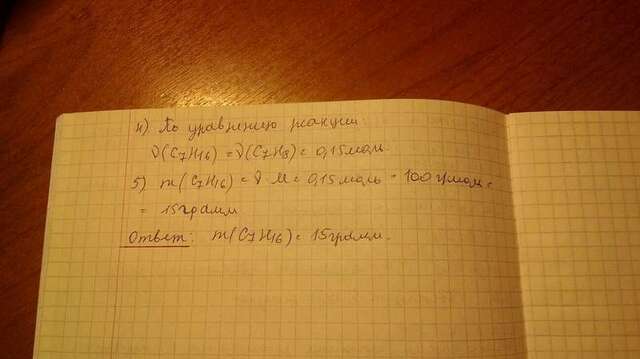 4) По уравнению реакции:
ν(C7H16) = ν(C7H8) = 0,15 моль
5) m(C7H16) = ν M = 0,15 моль * 100 г/моль =
= 15 грамм
Ответ: m(C7H16) = 15 грамм.